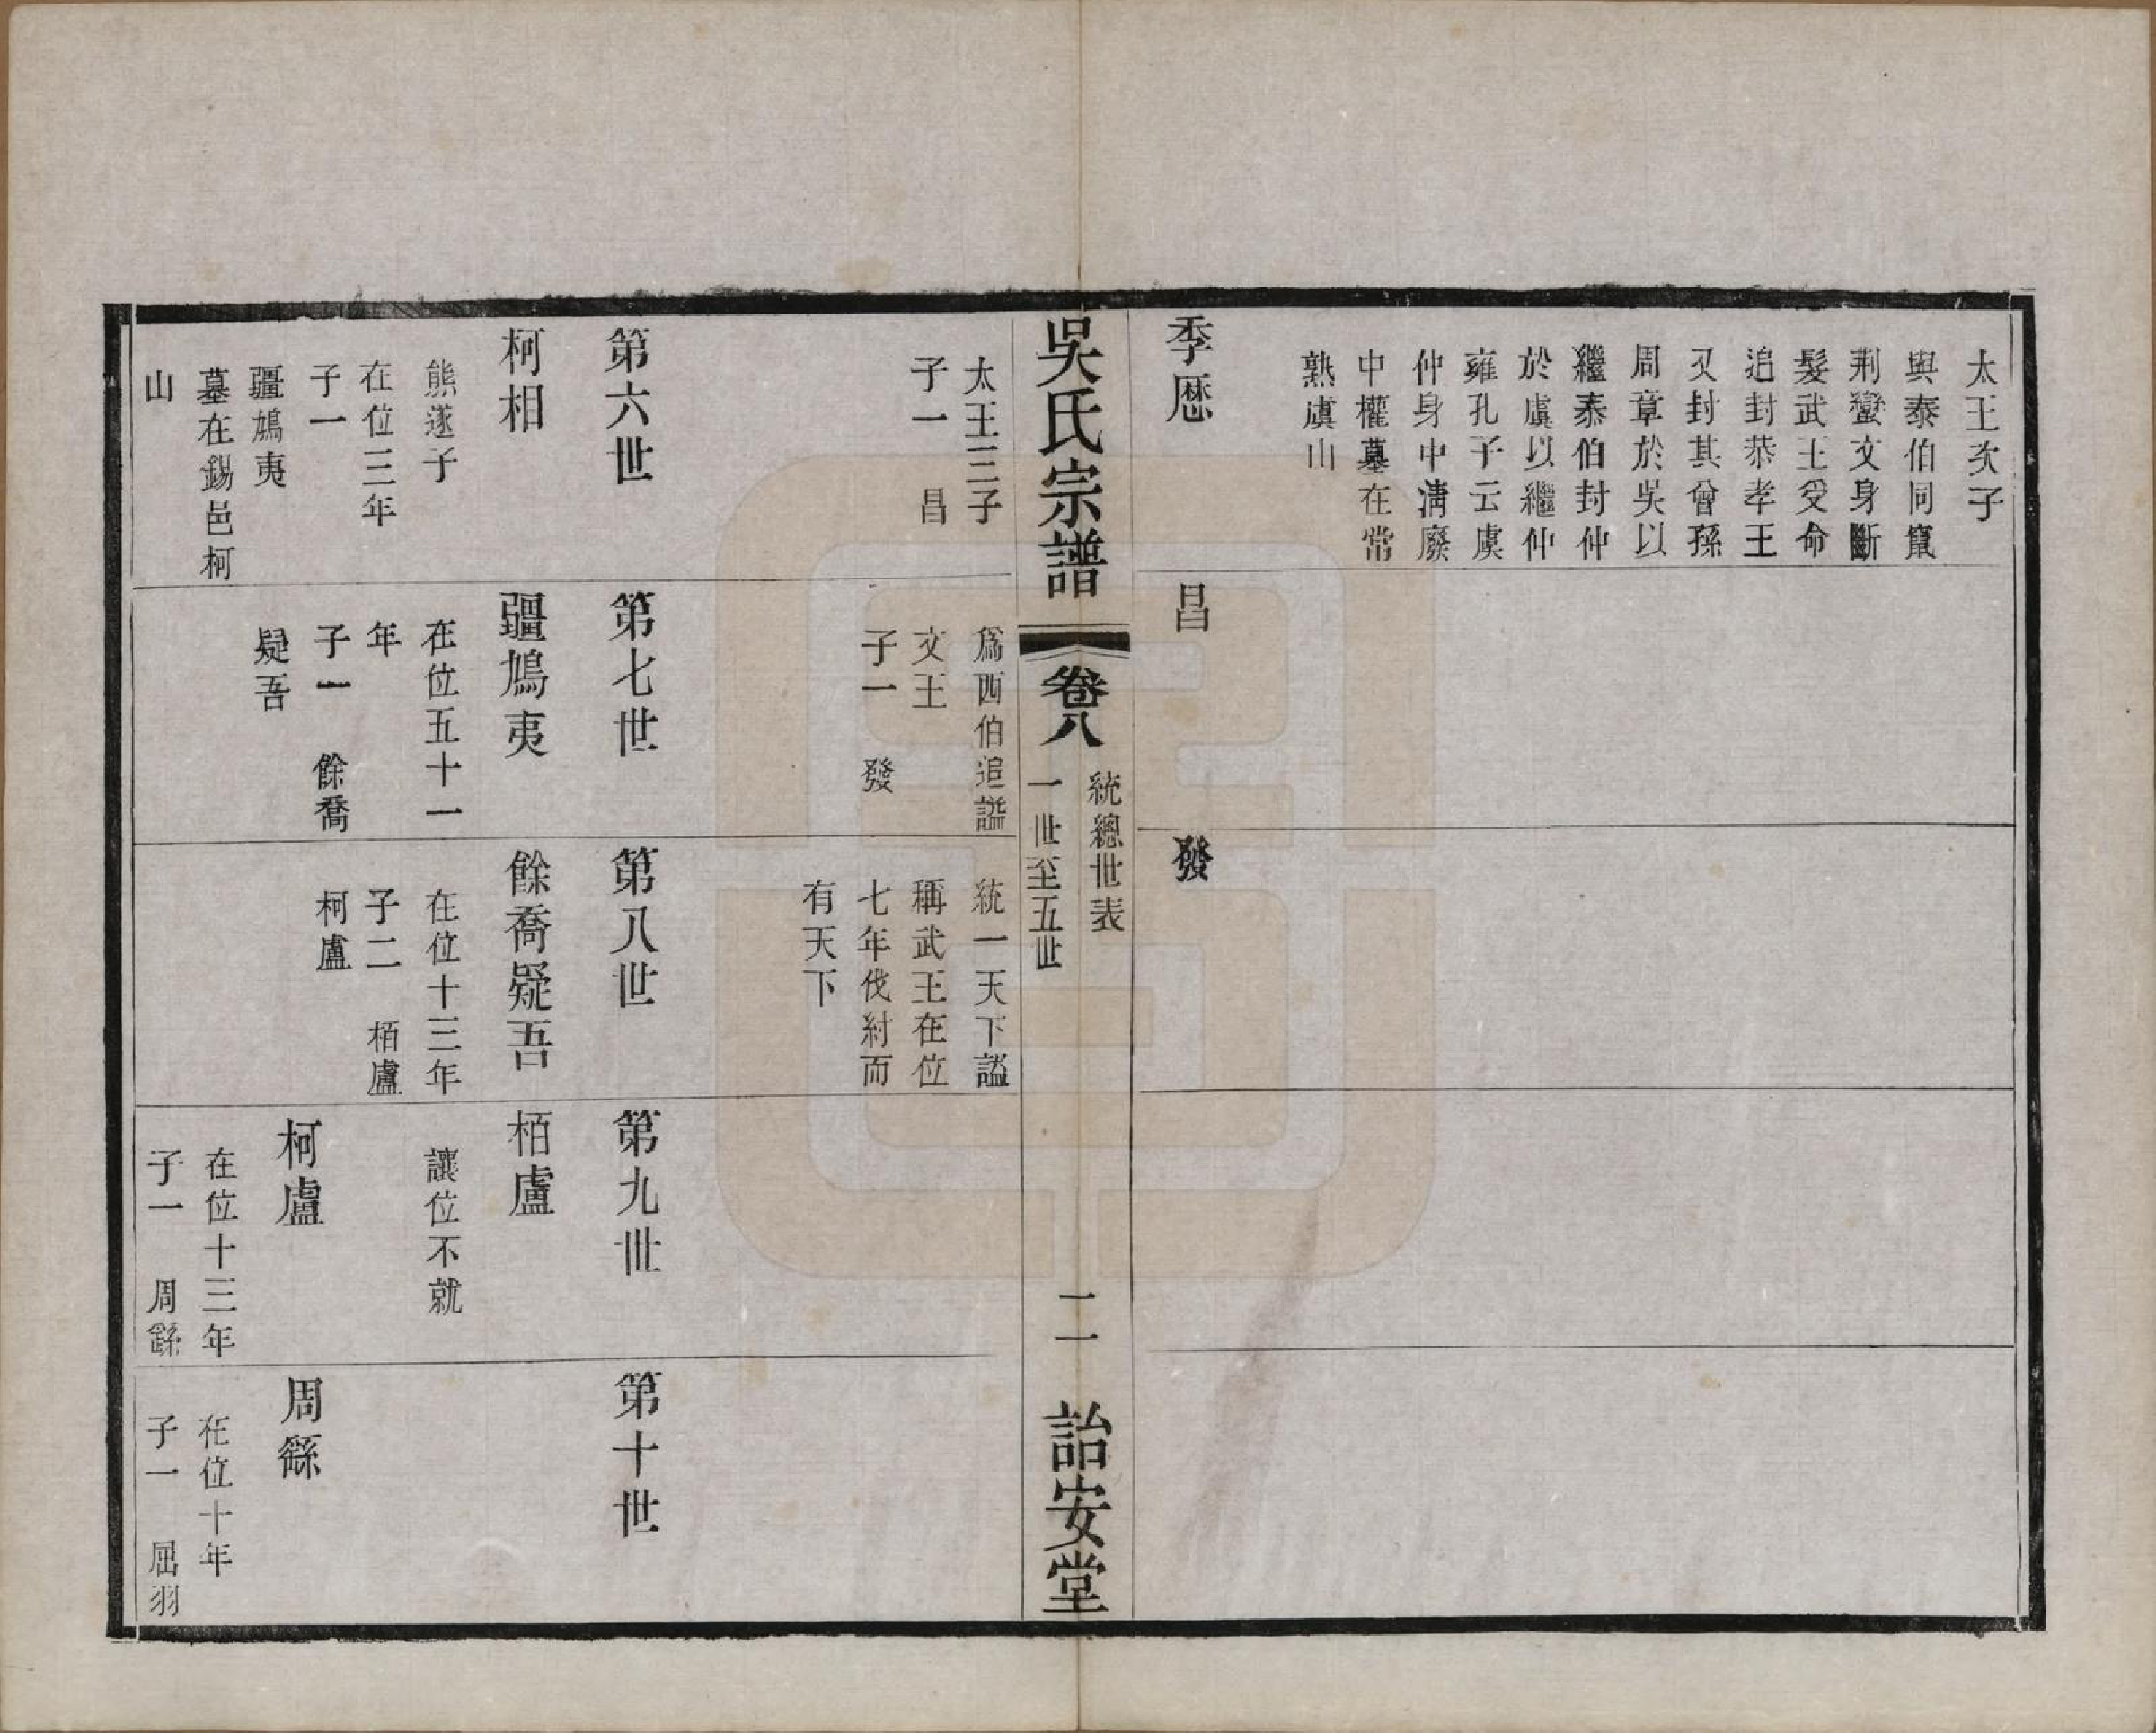 太王次子
與泰伯同竄
荆蠻文身斷
髮武王受命
追封恭孝王
又封其曾孫
周章於吳以
繼泰伯封仲
於虞以繼仲
雍孔子云虞
仲身中清廢
中權墓在常
熟虞山
季厯
昌
發
吳氏宗譜
卷八
統總世表
一世至五世
二
詒安堂
太王三子
子一 昌
爲西伯追謚
文王
子一 發
統一天下謚
稱武王在位
七年伐紂而
有天下
第六世
柯相
熊遂子
在位三年
子一
疆鳩夷
墓在錫邑柯
山
第七世
疆鳩夷
在位五十一
年
子一 餘喬
疑吾
第八世
餘喬疑吾
在位十三年
子二 栢盧
柯盧
第九世
栢盧
讓位不就
柯盧
在位十三年
子一 周繇
第十世
周繇
在位十年
子一 屈羽